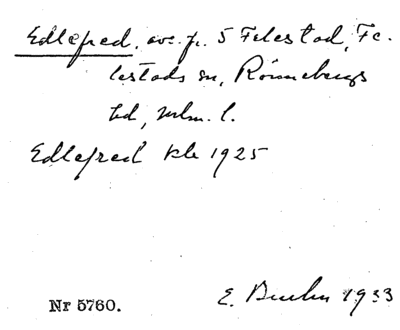 Edlefred, ave. p. 5 Felestad, Fe-
lestads sn, Rönnebergs
hd, Mlm. l.
Edlefred kbr 1925
Nr 5760.
E. 1933